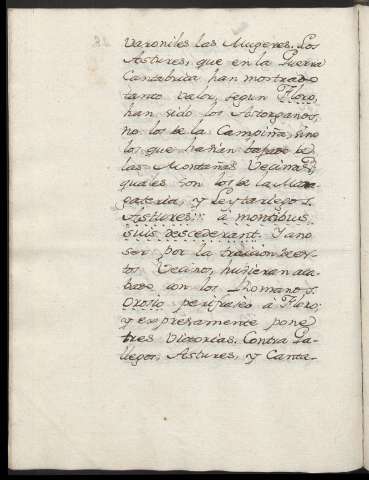 varoniles las Mugeres. Los
Astures, que en la Guerra
Cantabrica han mostrado
tanto valor, segun Floro,
han sido los Astorganos,
no los de la Campiña, sino
los que havian bajado de
las Montañas Vecinas,
quales son los de la Mara
gateria, y Leytariegos.
Astures: à montibus
suis descederant. Y a no
ser por la traicion de es-
tos Vecinos, huvieran aca-
bado con los Romanos.
Orosio perifraseo à Floro;
y expresamente pone
tres Victorias. Contra Ga-
llegos, Astures, y Canta-